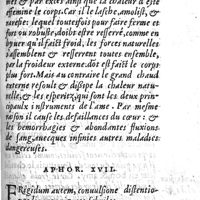 mine le corps. Car il le lasche, amolist, &
rarefie: lequel toutesfois pour faire ferme et
fort ou robuste, doibt estre resserré, comme en
yuer qu'il faict froid, les forces naturelles
s'assemblent & resserrent toutes ensemble,
par la froideur externe: dõt est faict le corps
plus fort. Mais au contraire le grand chaud
externe resoult & dissipe la chaleur natu-
relle, & les esperitz, qui sont les deux prin-
cipaulx instrumens de l'ame. Par mesme
raison il cause les defaillances du cœur: &
les hemorrhagies & abondantes fluxions
de sang, auecques infinies autres maladies
dangereuses.
APHOR. XVII.
FRigidum autem, conuulsiones distentio-